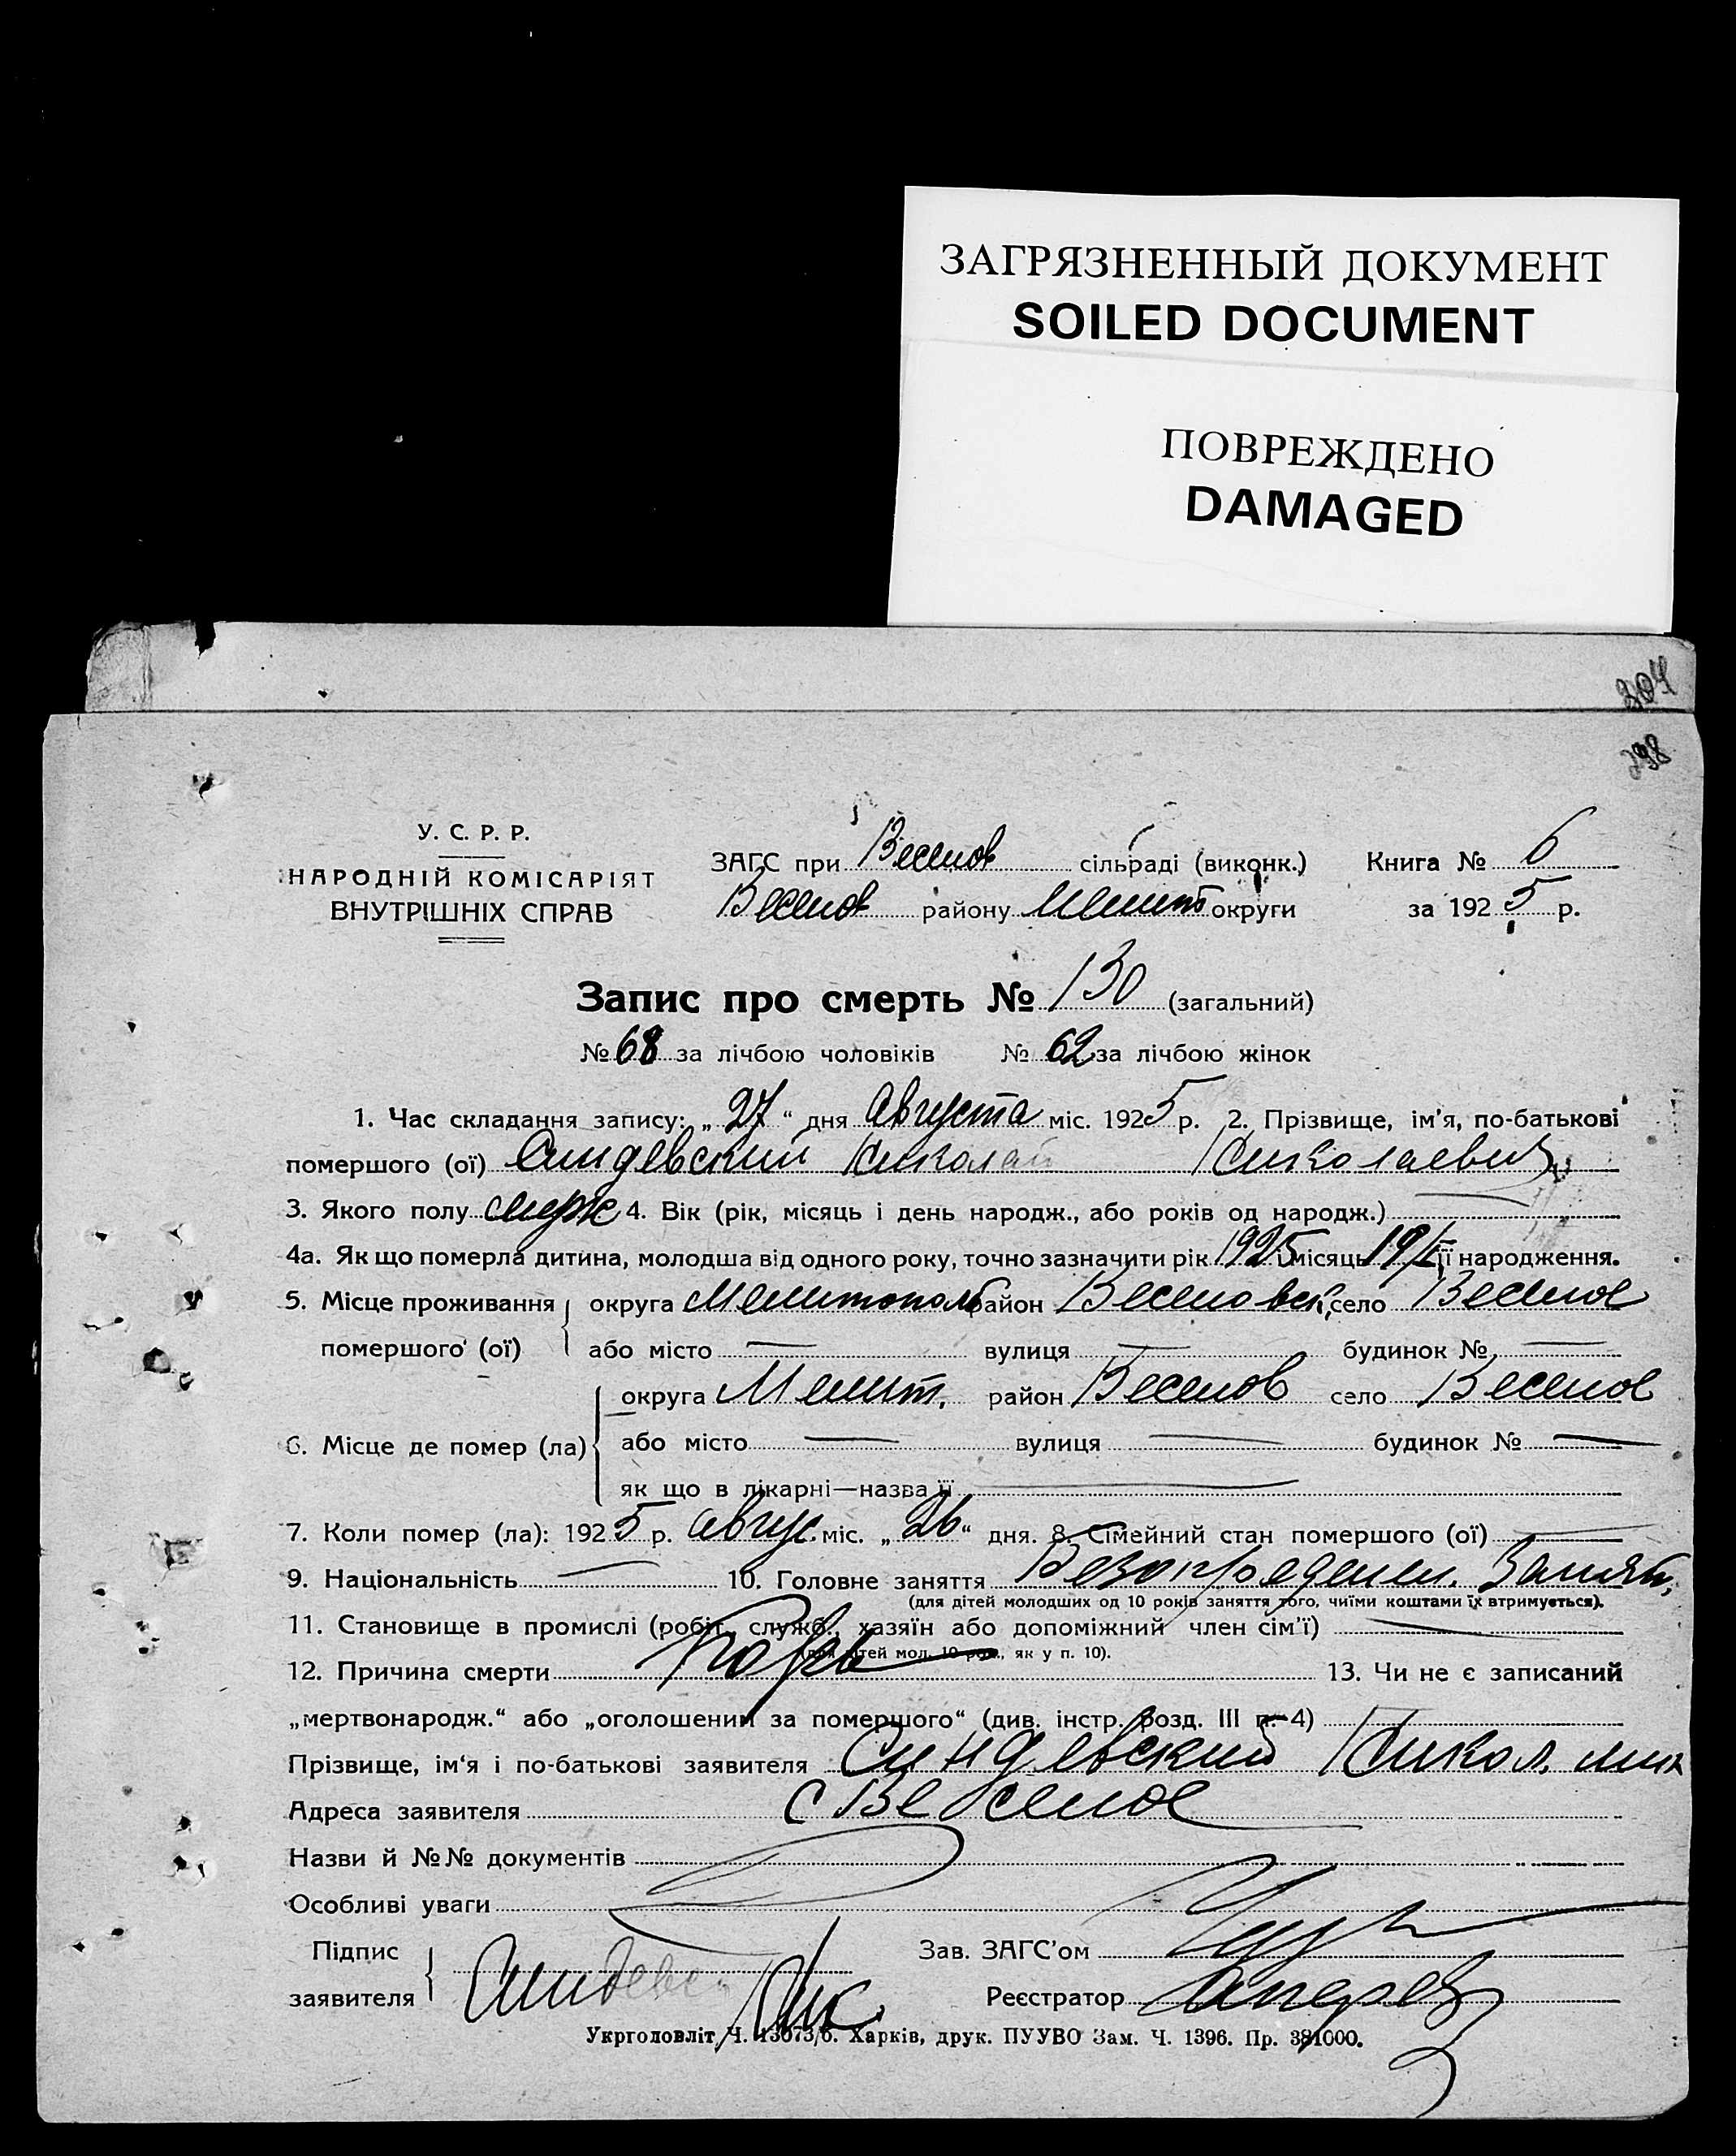 ЗАГРЯЗНЕННЫЙ ДОКУМЕНТ
SOILED DOCUMENT
ПОВРЕЖДЕНО
DAMAGED
304
398
У. С. Р. Р.
НАРОДНІЙ КОМІСАРІЯТ
ВНУТРІШНІХ СПРАВ
ЗАГС при Веселов сільраді (виконк.) Книга № 6
Веселов району Мелит округи за 1925 р.
Запис про смерть № 130 (загальний)
№ 68 за лічбою чоловіків № 62 за лічбою жінок
1. Час складання запису: „27“ дня Августа міс. 1925 р. 2. Прізвище, ім'я, по-батькові
помершого (ої) Синдевский Николай Николаевич
3. Якого полу 4. Вік (рік, місяць і день народж., або років од народж.)
4а. Як що померла дитина, молодша від одного року, точно зазначити рік 1925 і місяць 19/ її народження.
5. Місце проживання округа Мелитополь район Веселовск, село Веселое
помершого (ої) або місто — вулиця — будинок № —
округа Мелит. район Веселов село Веселое
6. Місце де помер (ла) або місто — вулиця — будинок № —
як що в лікарні—назва її —
7. Коли помер (ла): 1925 р. Авгус. міс. „26“ дня. 8. Сімейний стан помершого (ої) —
9. Національність — 10. Головне заняття Безопределен. Занят,
(для дітей молодших од 10 років заняття того, чиїми коштами їх втримується).
11. Становище в промислі (робіт., служб., хазяїн або допоміжний член сім'ї) —
(для дітей мол. 10 рок., як у п. 10).
12. Причина смерти 13. Чи не є записаний
„мертвонародж.“ або „оголошений за помершого“ (див. інстр. розд. III п. 4)
Прізвище, ім'я і по-батькові заявителя Синдевский Никол. Мих
Адреса заявителя с Веселое
Назви й №№ документів
Особливі уваги
Підпис Зав. ЗАГС'ом
заявителя Реєстратор
Укрголовліт, Ч. 13073/б. Харків, друк. ПУУВО Зам. Ч. 1396. Пр. 381000.